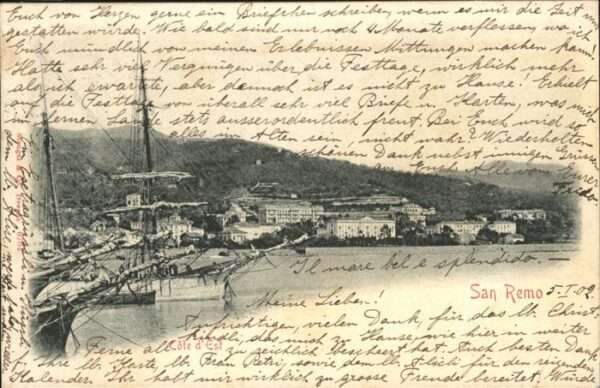 Euch von Herzen gerne ein Briefchen schreiben, wenn es mir die Zeit nur
gestatten würde. Wie bald sind nur noch 4 Monate verflossen, wo ich
Euch mündlich von meinen Erlebnissen Mittungen machen kann!
Hatte sehr viel Vergnügen über die Festtage, wirklich mehr
als ich erwarte, aber dennoch ist es nicht zu Hause! Erhielt
auf die Festtage von überall sehr viel Briefe u. Karten, was mich
im fernen Lande stets ausserordentlich freut. Bei Euch wird so
alles im Alten sein, nicht wahr? Wiederholten
schönen Dank nebst innigen Grüssen
Euch Alle
Frido
Il mare bel e splendido.-
San Remo 5.I.02
Meine Lieben!
Côte d'Est
Aufrichtigen, vielen Dank, für das lb. Christ-
kindli, das mich zu Hause wie hier in weiter
Ferne allzu reichlich beschert hat. Auch besten Dank
für Ihre lb. Karte lb. Frau Petri, sowie dem lb. für den reizenden
Kalender. Ihr habt mir wirklich zu grosse Freude bereitet. Würde